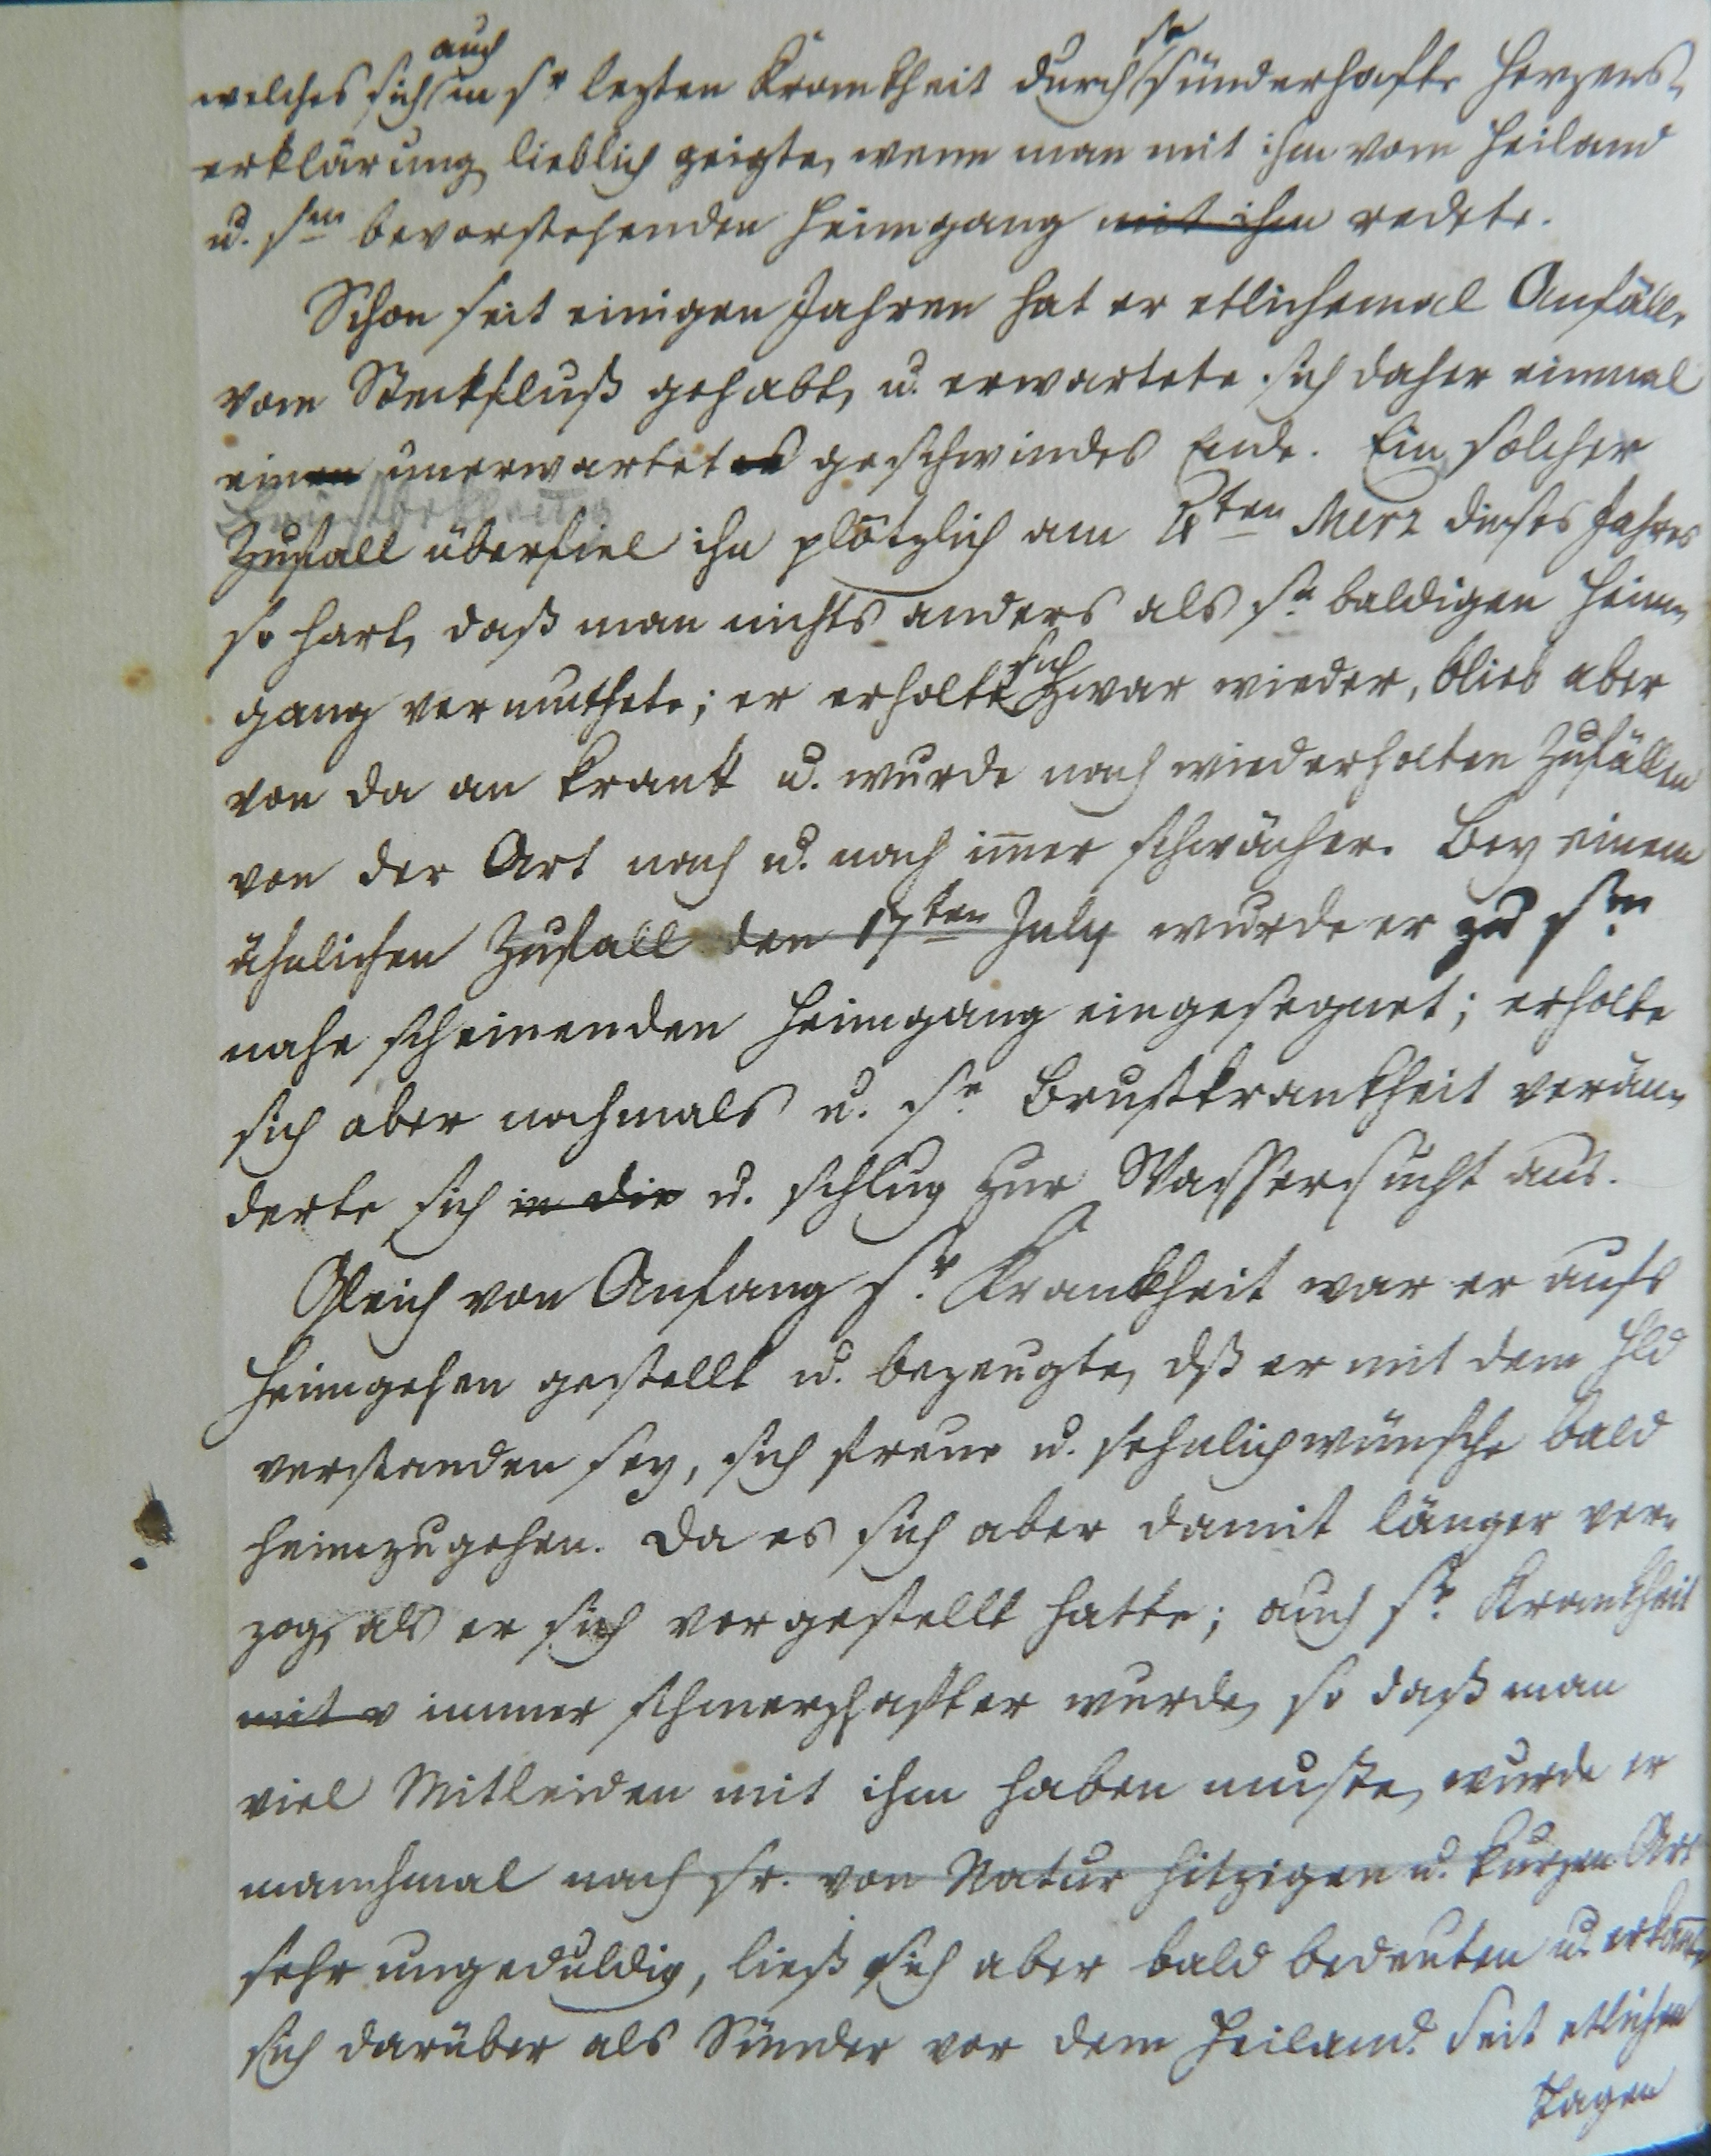 welches sich auch in sr lezten Krankheit durch se sünderhafte Herzens-
erklärung lieblich zeigte, wenn man mit ihm vom Heiland
u. sm bevorstehenden Heimgang mit ihm redete.
Schon seit einigen Jahren hat er etlichemal Anfälle
vom Steckfluß gehabt, u. erwartete sich daher einmal
einen unerwartetes geschwindes Ende. Ein solcher
Zufall überfiel ihn plötzlich am 4ten Merz dieses Jahres
so hart, daß man nichts anders als sn baldigen Heim-
gang vermuthete; er erholte sich zwar wieder, blieb aber
von da an krank u. wurde nach wiederholten Zufällen
von der Art nach u. nach im̄er schwächer. Bey einem
ähnlichen Zufall den 17ten July wurde er zu sm
nahe scheinenden Heimgang eingesegnet; erholte
sich aber nochmals u. se Brustkrankheit verän-
derte sich in die u. schlug zur Wassersucht aus.
Gleich von Anfang sr Krankheit war er aufs
Heimgehen gestellt u. bezeugte, dß er mit dem Hld
verstanden sey, sich freue u. sehnlich wünsche bald
heimzugehen. Da es sich aber damit länger ver-
zog, als er sich vorgestellt hatte; auch se Krankheit
mit v immer schmerzhafter wurde, so daß man
viel Mitleiden mit ihm haben muste, wurde er
manchmal nach sr. von Natur hitzigen u. kurzen Art
sehr ungeduldig, ließ sich aber bald bedeuten u. erkan̄te
sich darüber als Sünder vor dem Heiland. Seit etlichen
Tagen